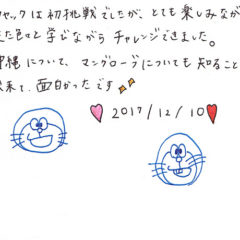 ヤックは初挑戦でしたが、とても楽しみなが
た色々と学びながら チャレンジできました。
沖縄について、マングローブについても知ること
来て、面白かったです
2017/12/10